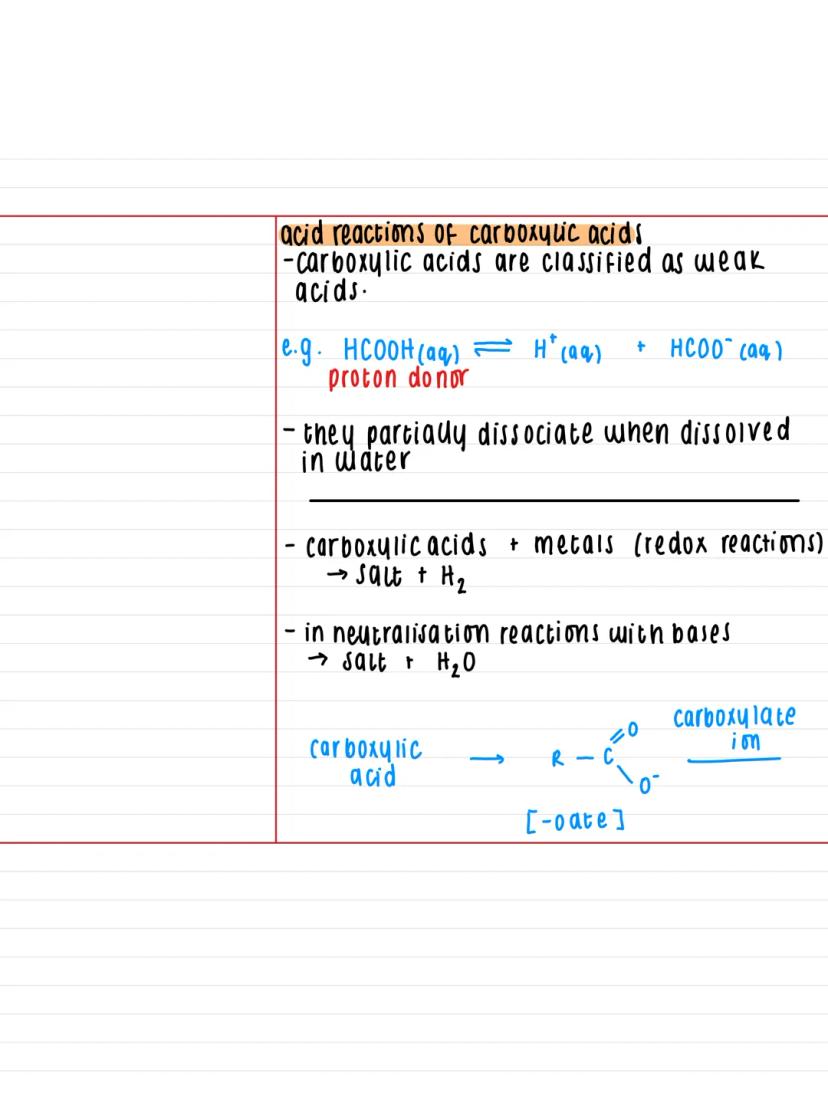 acid reactions of carboxylic acids
-carboxylic acids are classified as weak
acids.
e.g. HCOOH(aq) ⇌ H⁺(aq) + HCOO⁻(aq)
proton donor
- they partially dissociate when dissolved
in water
- carboxylic acids + metals (redox reactions)
→ salt + H₂
- in neutralisation reactions with bases
→ salt + H₂O
carboxylate
ion
carboxylic
acid
→ R — C
O
O⁻
[-oate]